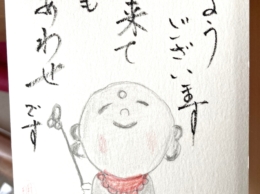 よう
ございます
来て
も
あわせです